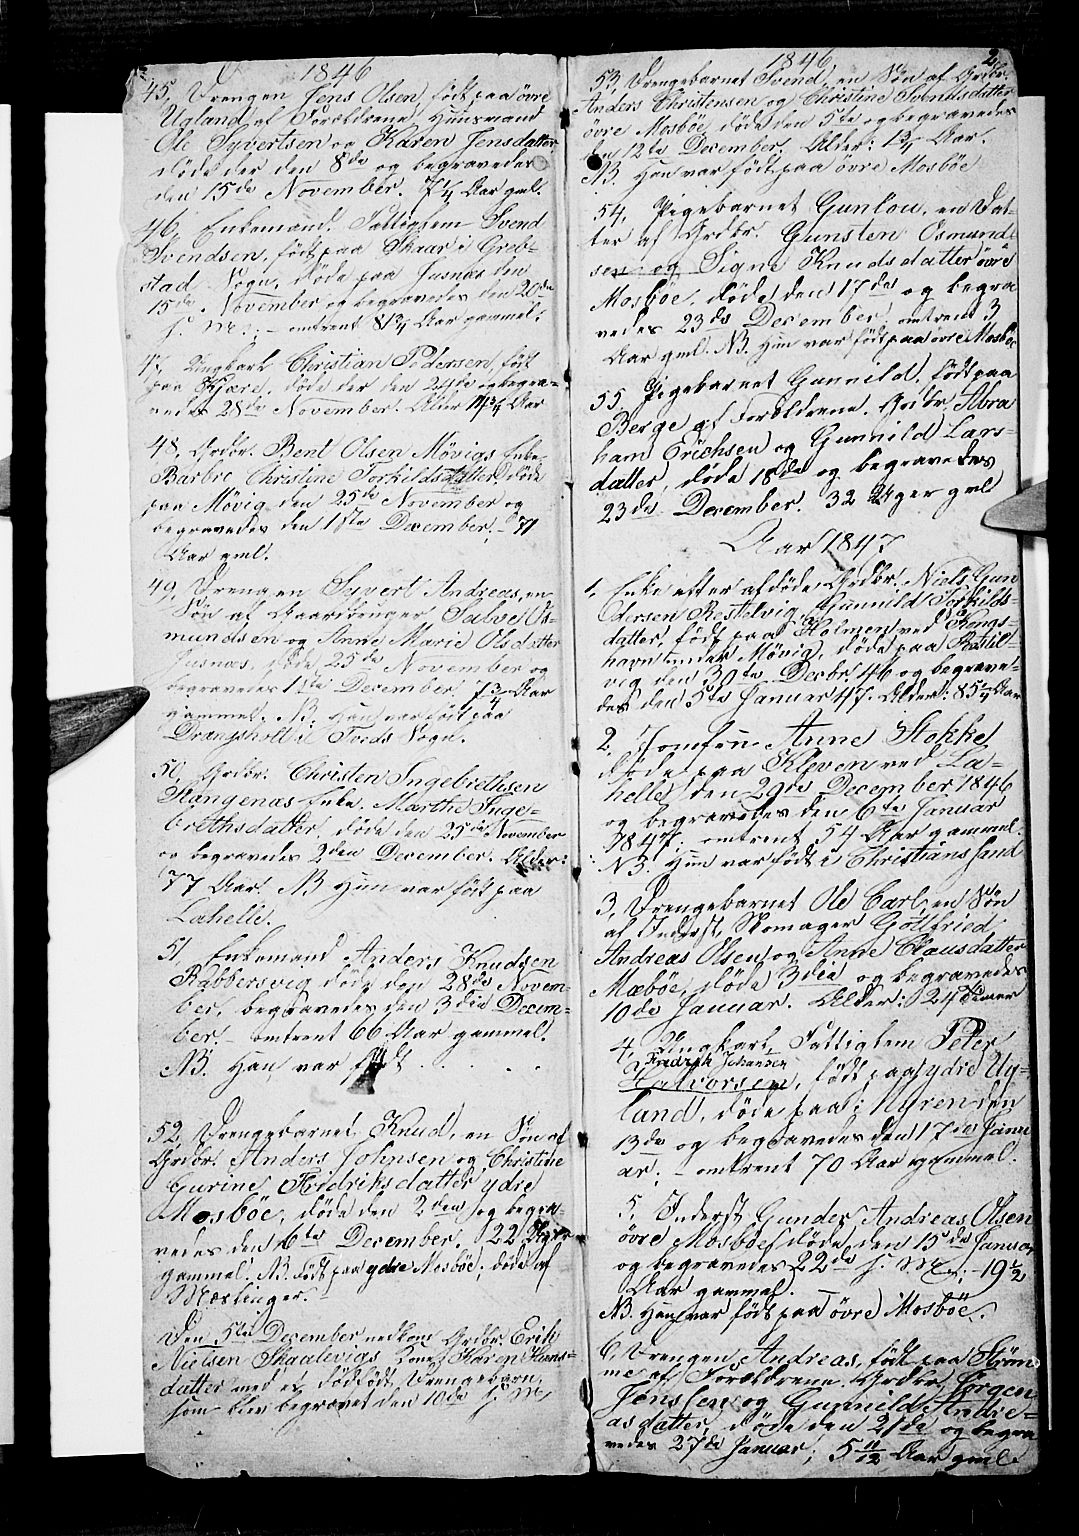 1846
45, Drengen Jens Olsen, født paa øvre
Ugland af Forældrene Huusmand
Ole Syvertsen og Karen Jensdatter
døde der den 8de og begravedes
den 15de November. 7¼ Aar gml.
46, Enkemand. Fattiglem Svend
Svendsen, født paa Skaar i Greb-
stad Sogn, døde paa Jusnæs den
15de November og begravedes den 20de
s. M.; - omtrent 81¾ Aar gammel.
47, Ungkarl Christian Pedersen, født
paa Kjære, døde der den 24de og begra-
vedes 28de November. Alder
Aar
48, Grdbr. Bent Olsen Møvigs Enke
Barbro Christine Torkildsdatter, døde
paa Møvig den 25de November og
begravedes den 1ste December, - 71
Aar gml.
49, Drengen Syvert Andreas, en
Søn af Gaardbruger Salve Os-
mundsen og Anne Marie Olsdatter
Jusnæs, døde 25de November og
begravedes 1ste December,
Aar
gammel. NB. Han var født paa
Drangsholt i Tveds Sogn.
50, Grdbr. Christen Ingebrethsen
Stangenæs Enke, Marthe Inge-
brethsdatter, døde den 25de November
og begravedes 2den December. Alder:
77 Aar. NB Hun var født paa
Lahelle.
51, Enkemand Anders Knudsen
Rabbersvig døde den 28de Novem-
ber, begravedes den 3die Decem-
ber. - omtrent 66 Aar gammel.
NB. Han var født . . . . .
52, Drengebarnet Knud, en Søn af
Grdbr. Anders Johnsen og Christine
Gurine Fredriksdatter ydre
Mosbøe, døde den 2den og begra-
vedes den 6te December. 22 Uger
gammel. NB. Født paa ydre Mosbøe; døde af
Mæslinger.
Den 5te December nedkom Grdbr. Erik
Nielsen Skaalevigs Kone Karen Hans-
datter med et dødfødt Drengebarn,
som blev begravet den 10de s. M.
1846
2
53, Drengebarnet Svend, en Søn af Grdbr.
Anders Christensen og Christine Svendsdatter
øvre Mosbøe, døde den 5te og begravedes
den 12te December. Alder:
Aar.
NB. Han var født paa øvre Mosbøe
54, Pigebarnet Gunlou, en Dat-
ter af Grdbr. Gunsten Osmund-
sen og Signe Knudsdatter øvre
Mosbøe, døde den 17de og begra
vedes 23de December, omtrent 3
Aar gml. NB. Hun var født paa øvre Mosbøe
55, Pigebarnet Gunnild, født paa
Berge af Forældrene. Grdbr. Abra
ham Erichsen og Gunnild Lars-
datter, døde 18de og begravedes
23de December. 32 Uger gml
Aar 1847
1, Enke efter afdøde Grdbr. Niels Gun
dersen Restelvig, Gunnild Torkilds-
datter, født paa Holmen ved Kongs-
havn under Møvig, døde paa Restel-
vig den 30te Decbr. 46 og begrave-
des den 5te Januar 47. Alder: 85¼ Aar
2, Jomfru Anne Stokke
døde paa Kleven ved La-
helle, den 29de December 1846
og begravedes den 6te Januar
1847, omtrent 54 Aar gammel.
NB. Hun var født i Christianssand
3, Drengebarnet Ole Carl, en Søn
af Inderst, Skomager Gottfried
Andreas Olsen og Anne Clausdatter
Mæbøe, døde 3die og begravedes
10de Januar. Alder: 24 Timer
4, Ungkarl, Fattiglem Peter
Fredrich Johansen
Halvorsen, født paa ydre Ug-
land, døde paa Myren den
13de og begravedes den 17de Janu
ar; omtrent 70 Aar gammel.
5, Inderst Gunder Andreas Olsen
øvre Mosbøe, døde den 15de Januar
og begravedes 22de s. M.; - 19½
Aar gammel.
NB. Han var født paa øvre Mosbøe.
6, Drengen Andreas, født paa Strøm-
me af Forældrene. Grdbr. Jørgen
Jenssen og Gunnild Andre-
asdatter, døde den 21de og begra
vedes 27de Januar; 5 11/12 Aar gml.